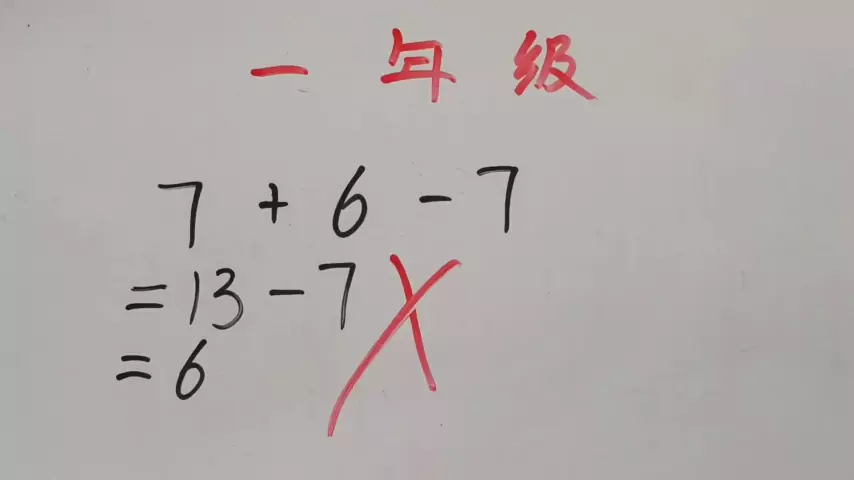 一年级
7 + 6 - 7
= 13 - 7
= 6